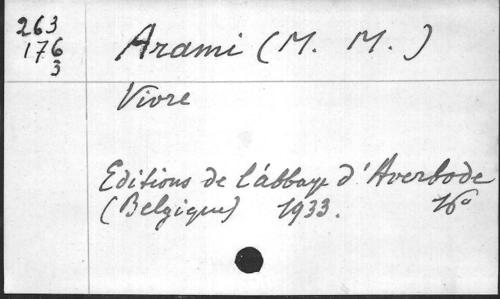 263 Arami (M. M.)
176
3
Vivre
Editions de l'abbaye d'Averbode
(Belgique) 1933. 16°